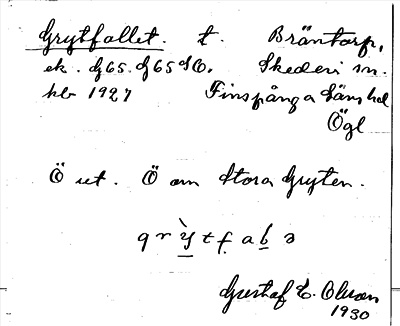 Grytfallet. t. Bräntorp,
ek. G65. G65SO. Skedevi sn.
kbl 1927 Finspånga läns hd
Ögl
Ö ut. Ö om Stora Gryten.
Gustaf E. Olsson
1930